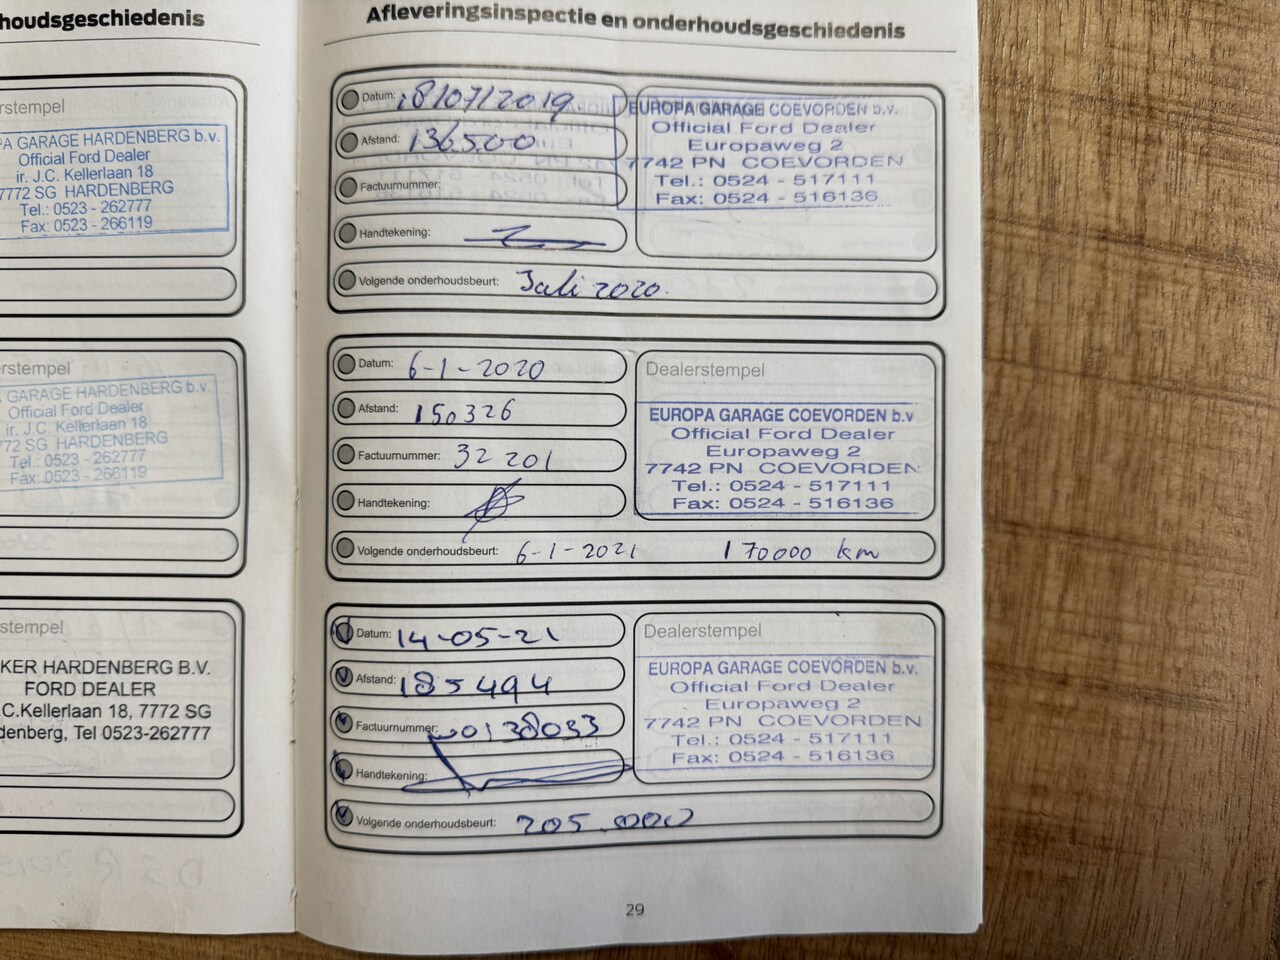 houdsgeschiedenis
rstempel
PA GARAGE HARDENBERG b.v.
Official Ford Dealer
ir. J.C. Kellerlaan 18
7772 SG HARDENBERG
Tel.: 0523 - 262777
Fax: 0523 - 266119
rstempel
GARAGE HARDENBERG b.v.
Official Ford Dealer
ir. J.C. Kellerlaan 18
772 SG HARDENBERG
Tel.: 0523 - 262777
Fax: 0523 - 266119
stempel
KER HARDENBERG B.V.
FORD DEALER
.C.Kellerlaan 18, 7772 SG
denberg, Tel 0523-262777
Afleveringsinspectie en onderhoudsgeschiedenis
Datum: 18/07/2019
Afstand: 136500
Factuurnummer:
Handtekening:
Volgende onderhoudsbeurt: Juli 2020.
EUROPA GARAGE COEVORDEN b.v.
Official Ford Dealer
Europaweg 2
7742 PN COEVORDEN
Tel.: 0524 - 517111
Fax: 0524 - 516136
Datum: 6-1-2020
Afstand: 150326
Factuurnummer: 32201
Handtekening:
Volgende onderhoudsbeurt: 6-1-2021 170000 km
Dealerstempel
EUROPA GARAGE COEVORDEN b.v
Official Ford Dealer
Europaweg 2
7742 PN COEVORDEN
Tel.: 0524 - 517111
Fax: 0524 - 516136
Datum: 14-05-21
Afstand: 185494
Factuurnummer: 00138033
Handtekening:
Volgende onderhoudsbeurt: 205.000
Dealerstempel
EUROPA GARAGE COEVORDEN b.v.
Official Ford Dealer
Europaweg 2
7742 PN COEVORDEN
Tel.: 0524 - 517111
Fax: 0524 - 516136
29